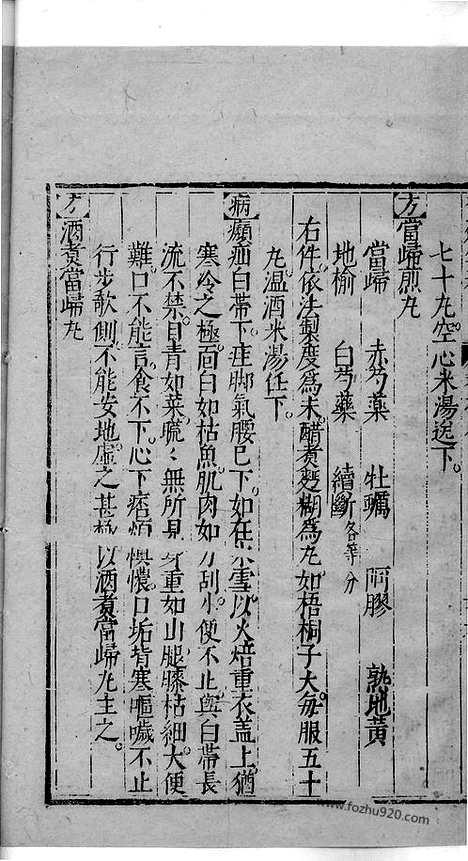 七十丸空心米湯送下
方 當歸煎丸
當歸 赤芍藥 牡蠣 阿膠 熟地黃
地榆 白芍藥 續斷各等分
右件依法製度爲末醋煮麪糊爲丸如梧桐子大每服五十
丸溫酒米湯任下
病 㿗疝白帶下疰脚氣腰已下如在氷雪以火焙重衣蓋上猶
寒冷之極面白如枯魚肌肉如刀刮小便不止與白帶長
流不禁目青如菜䀮䀮無所見身重如山腿膝枯細大便
難口不能言食不下心下痞煩懊憹口垢背寒嘔噦不止
行步欹側不能安地虛之甚 以酒煮當歸丸主之
方 酒煮當歸丸
www.fozhu920.com